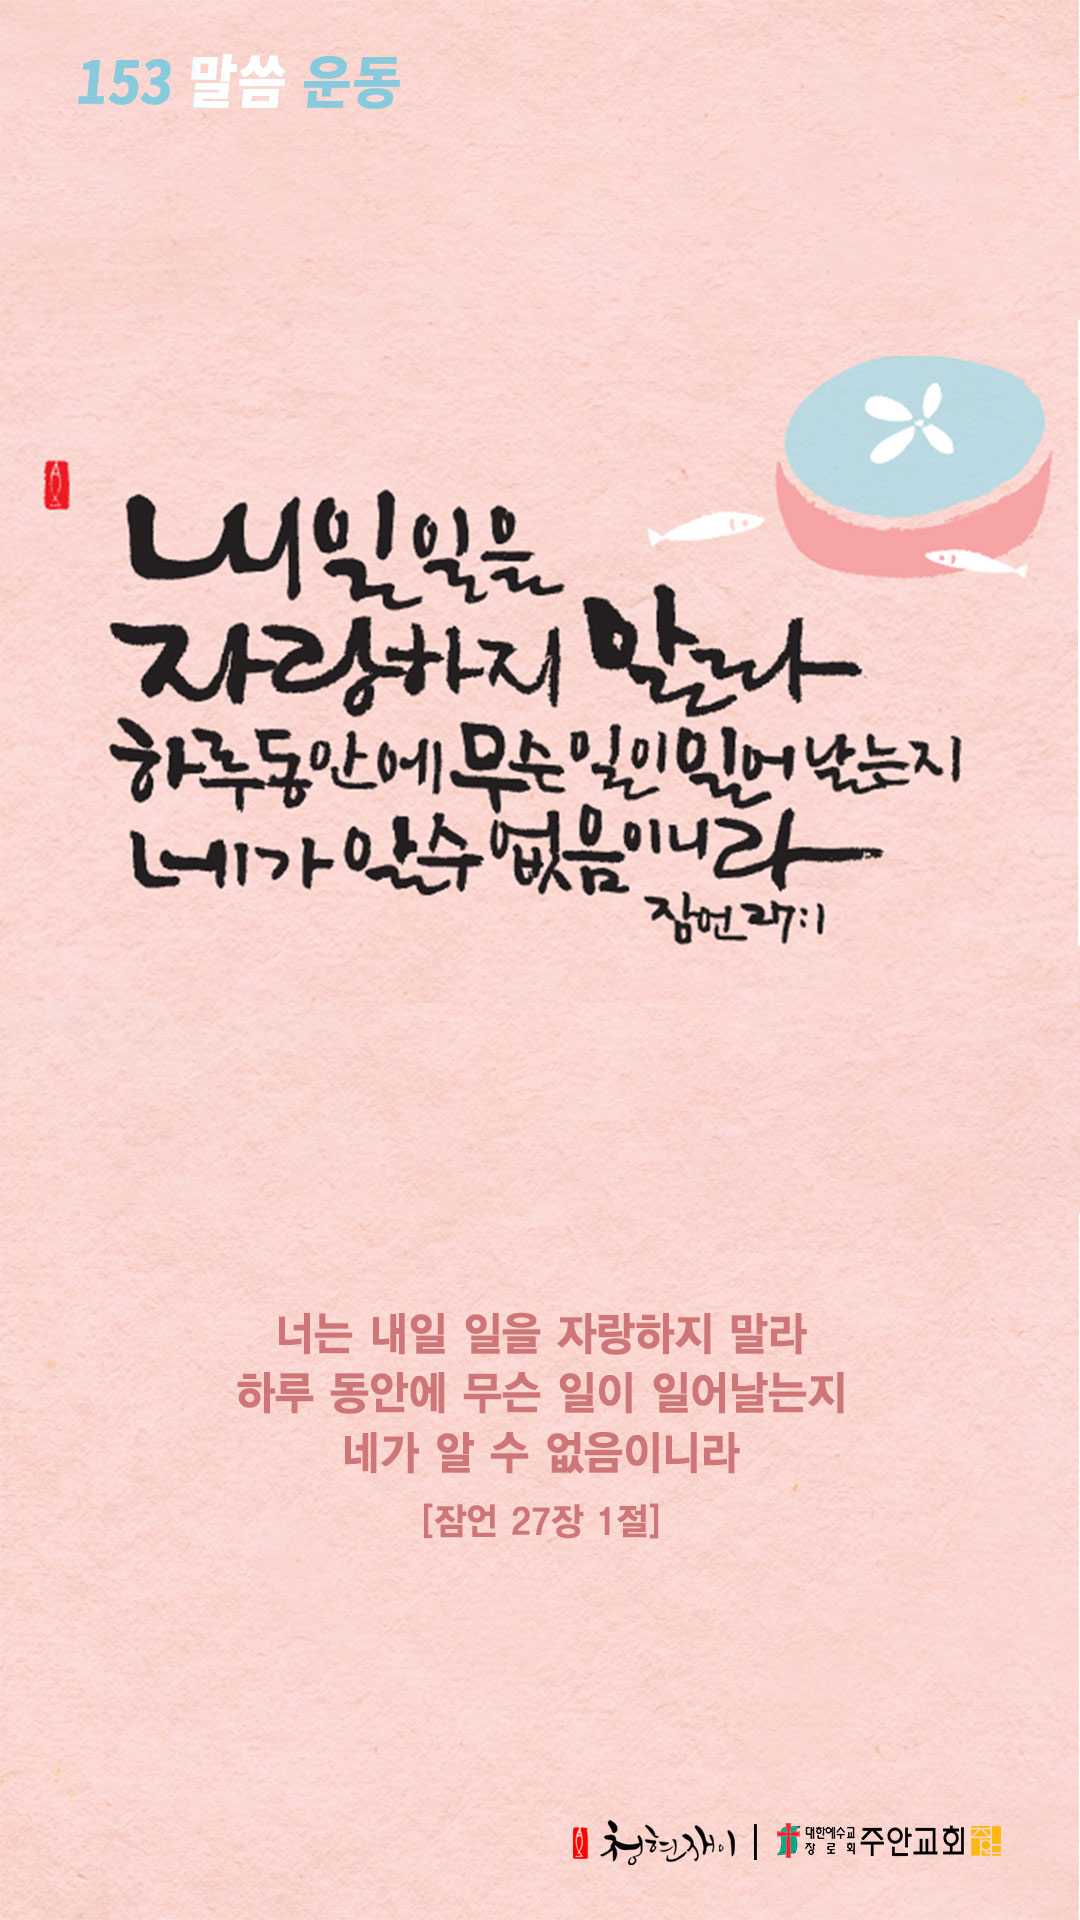 153 말씀 운동
내일 일을
자랑하지 말라
하루 동안에 무슨 일이 일어날는지
네가 알 수 없음이니라
잠언 27:1
너는 내일 일을 자랑하지 말라
하루 동안에 무슨 일이 일어날는지
네가 알 수 없음이니라
[잠언 27장 1절]
청현재이 | 대한예수교 장로회 주안교회